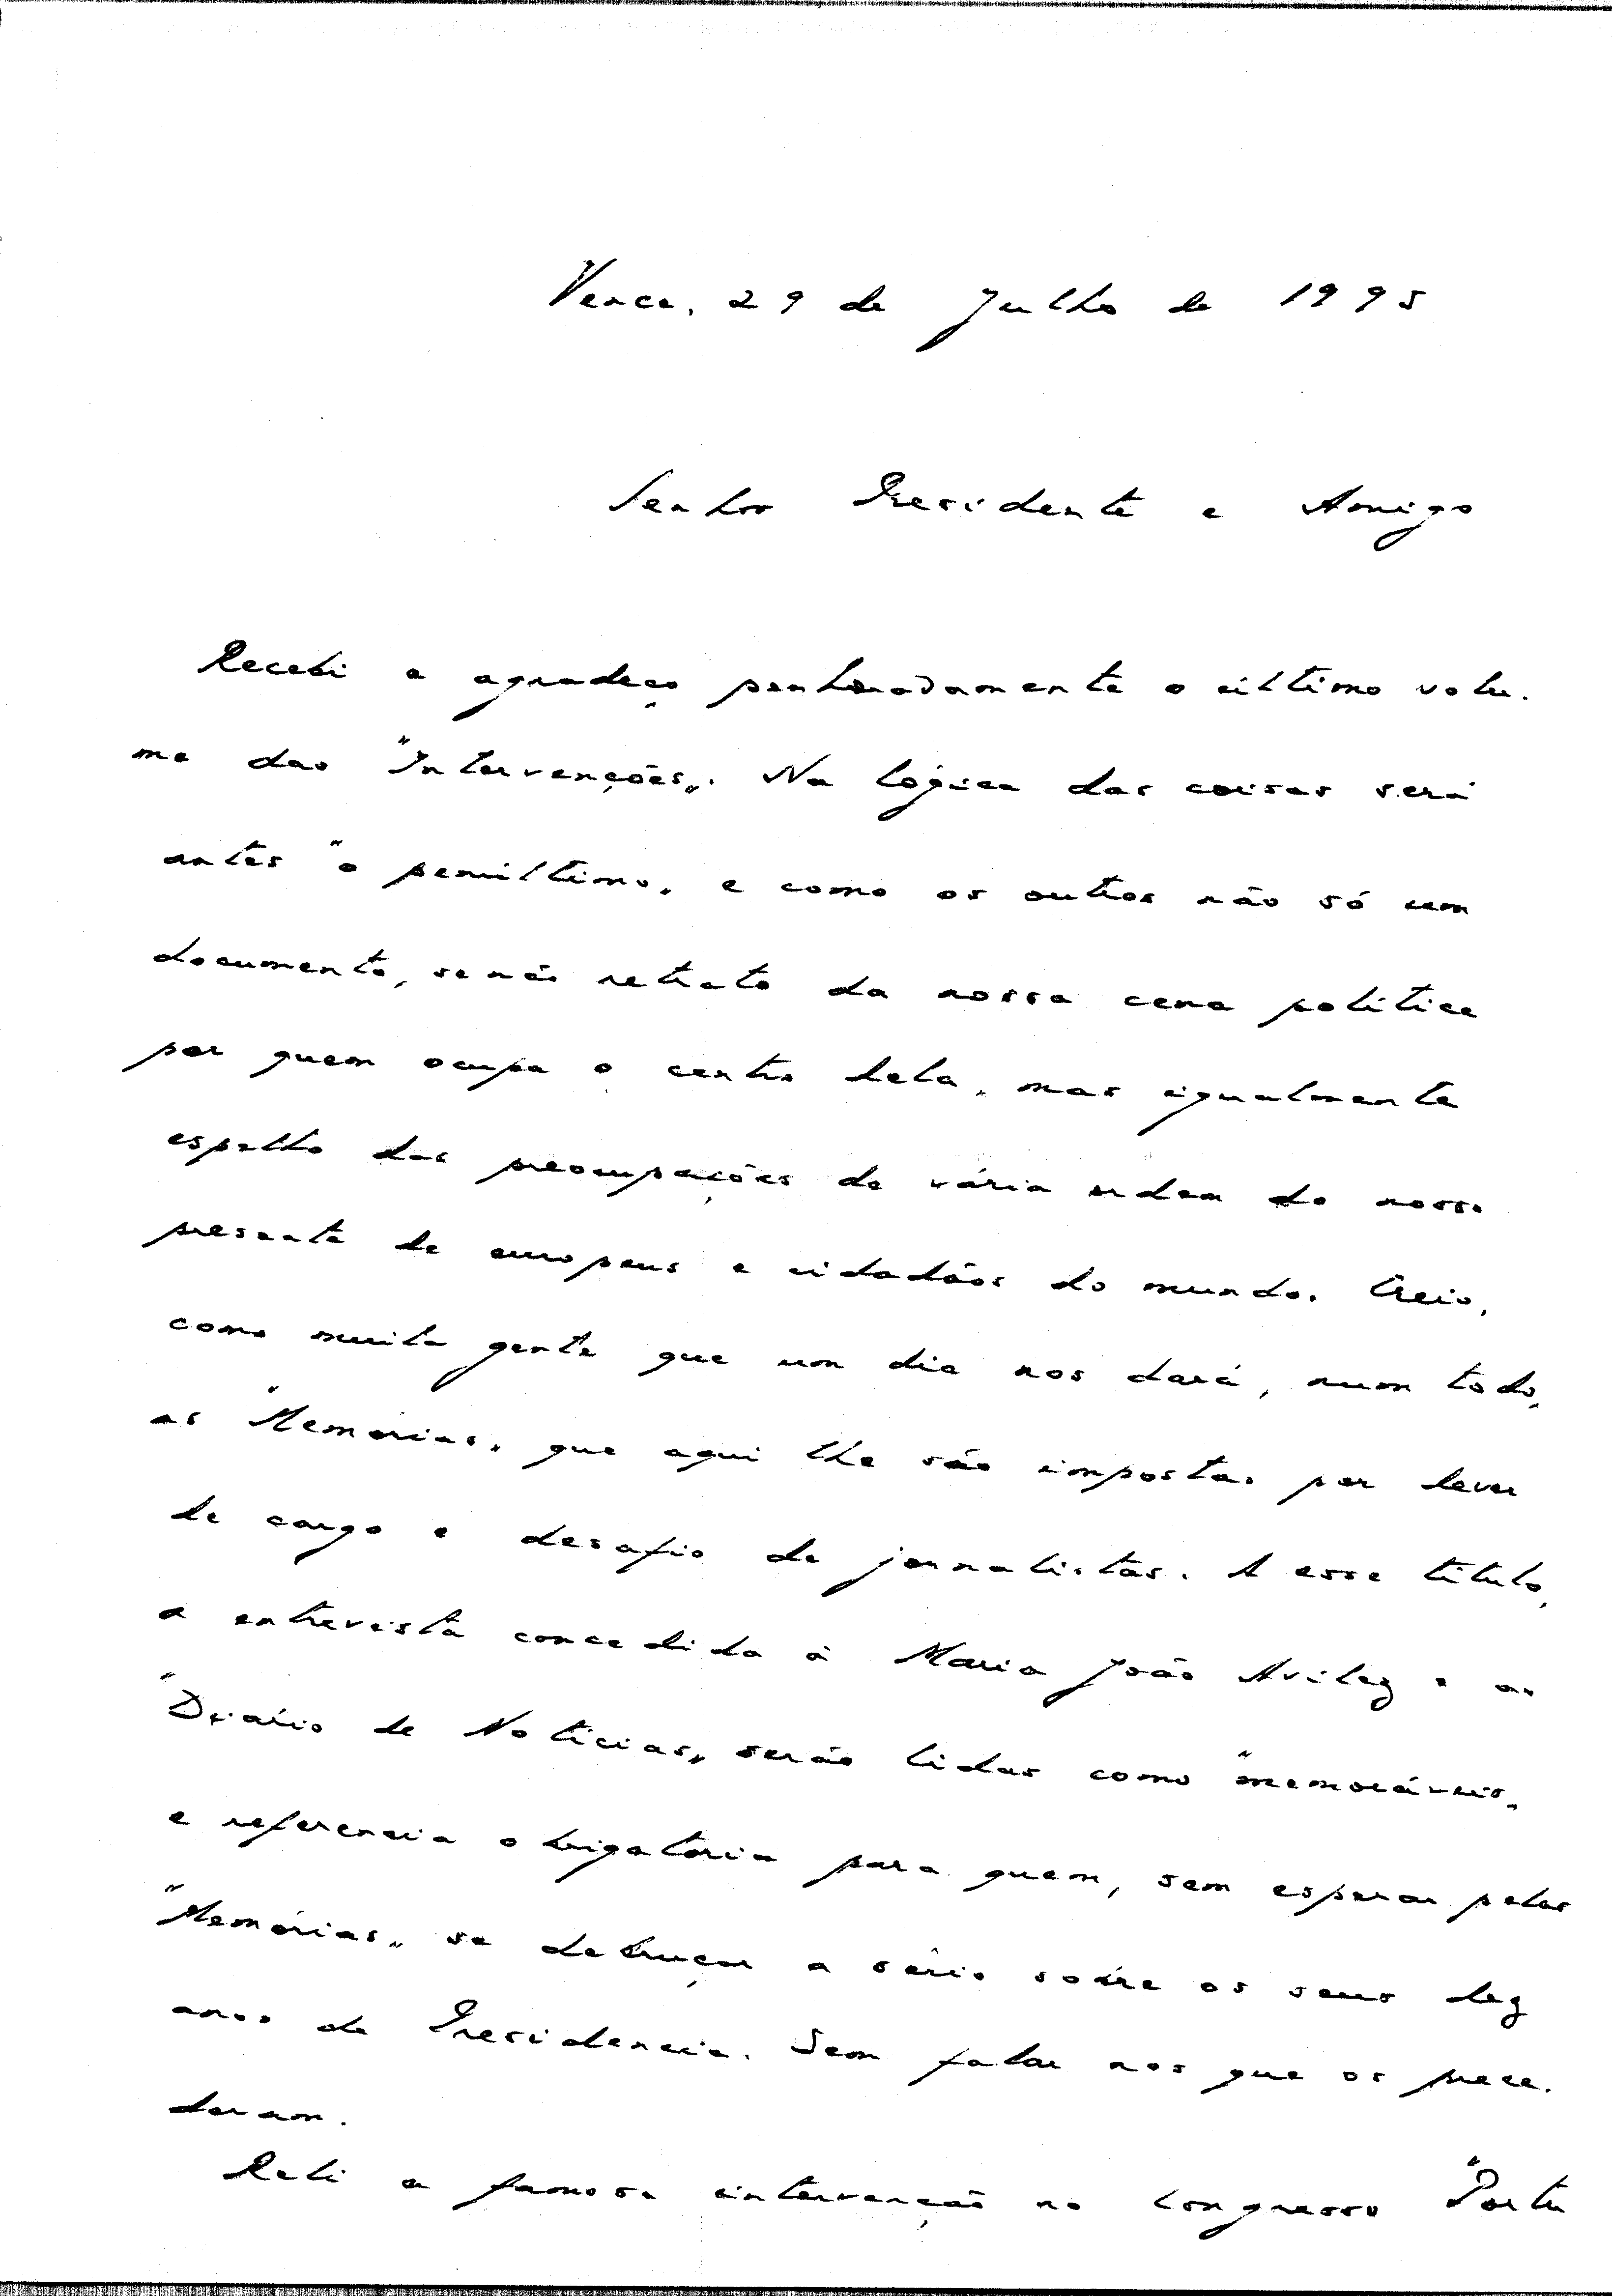 Vence, 29 de Julho de 1995
Senhor Presidente e Amigo
Recebi e agradeço penhoradamente o último volu-
me das "Intervenções". Na lógica das coisas será
antes "o penúltimo" e como os outros não só um
documento, senão retrato da nossa cena política
por quem ocupa o centro dela, mas igualmente
espelho das preocupações de vária ordem do nosso
presente de europeus e cidadãos do mundo. Creio,
como muita gente que um dia nos dará, num todo,
as "Memórias" que aqui lhe são impostas por dever
de cargo e desafio de jornalistas. A esse título,
a entrevista concedida à Maria João Avilez e ao
"Diário de Notícias" serão lidas como "memoráveis"
e referencia obrigatória para quem, sem esperar pelas
"Memórias" se debruçar a sério sobre os seus dez
anos de Presidencia. Sem falar nos que os prece-
deram.
Reli a famosa intervenção no Congresso "Portu